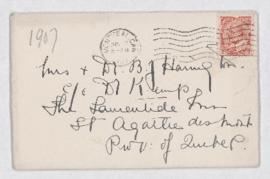 1907
MONTREAL CAN
Mrs & Dr. B J Harrington
c/o Dr Kemp
The Laurentide Inn
St Agathe des Monts
Prov. of Quebec.